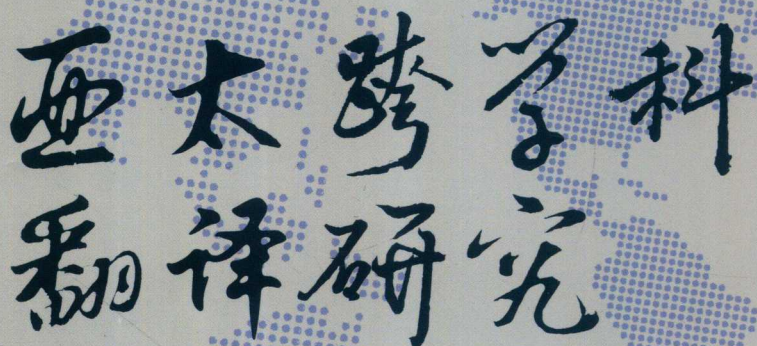 亚太跨学科
翻译研究